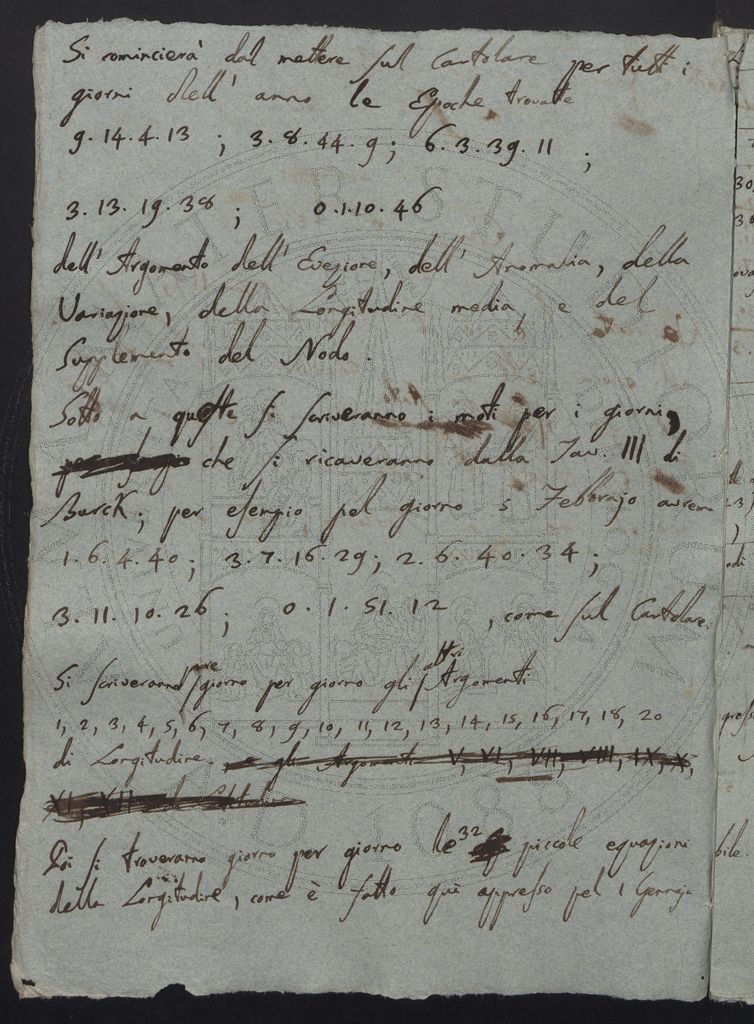 Si comincierà dal mettere sul Cartolare per tutti i
giorni dell' anno le Epoche trovate
9.14.4.13 ; 3.8.44.9 ; 6.3.39.11 ;
3.13.19.38 ; 0.1.10.46
dell' Argomento dell' Evezione, dell' Anomalia, della
Variazione, della Longitudine media, e del
Supplemento del Nodo.
Sotto a queste si scriveranno i moti per i giorni,
che si ricaveranno dalla Tav. III di
Burck; per esempio pel giorno 5 Febbrajo avrem
1.6.4.40 ; 3.7.16.29 ; 2.6.40.34 ;
3.11.10.26 ; 0.1.51.12 , come sul Cartolare.
Si scriveranno pure giorno per giorno gli altri Argomenti
1, 2, 3, 4, 5, 6, 7, 8, 9, 10, 11, 12, 13, 14, 15, 16, 17, 18, 20
di Longitudine. e gli Argomenti V, VI, VII, VIII, IX, X,
XI, XII
Poi si troveranno giorno per giorno le 32 piccole equazioni
della Longitudine, come è fatto quì appresso pel 1 Gennajo